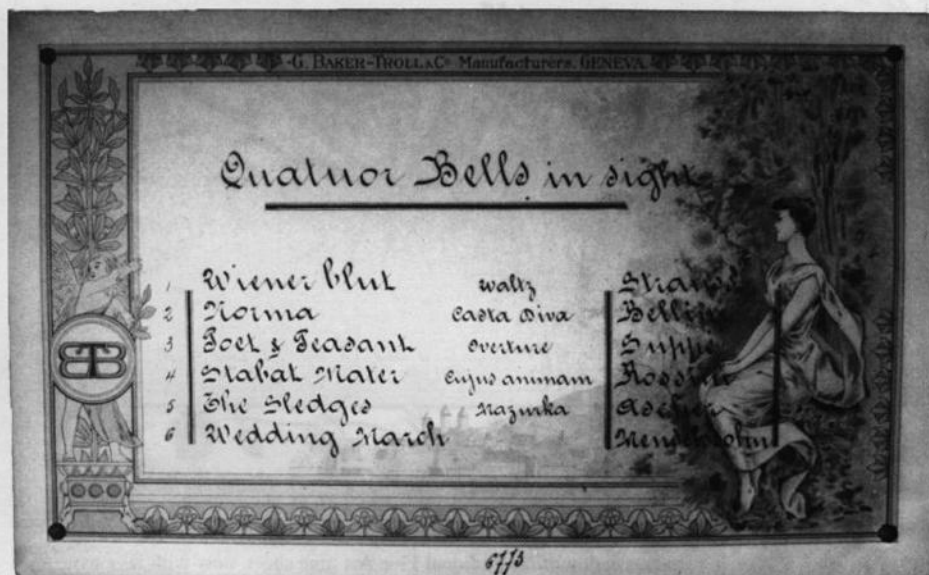 G. BAKER-TROLL & Co Manufacturers. GENEVA.
Quatuor Bells in sight
1 Wiener blut waltz Strauss
2 Norma Casta Diva Bellini
3 Poet & Peasant Overture Suppe
4 Stabat Mater Cujus animam Rossini
5 The Sledges Mazurka Ascher
6 Wedding March Mendelssohn
6773